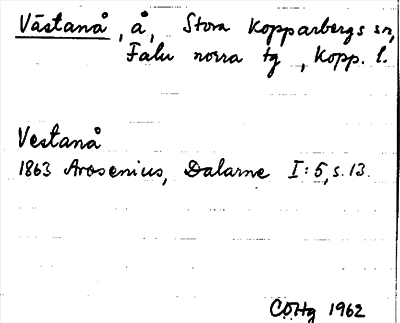 Västanå, å, Stora Kopparbergs sn,
Falu norra tg, Kopp. l.
Vestanå
1863 Arosenius, Dalarne I:5, s. 13.
COHg 1962